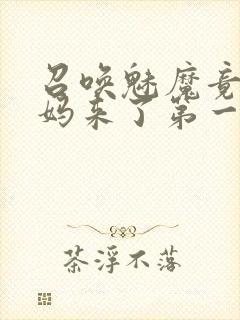 召唤魅魔竟
妈来了第一
茶浮不落